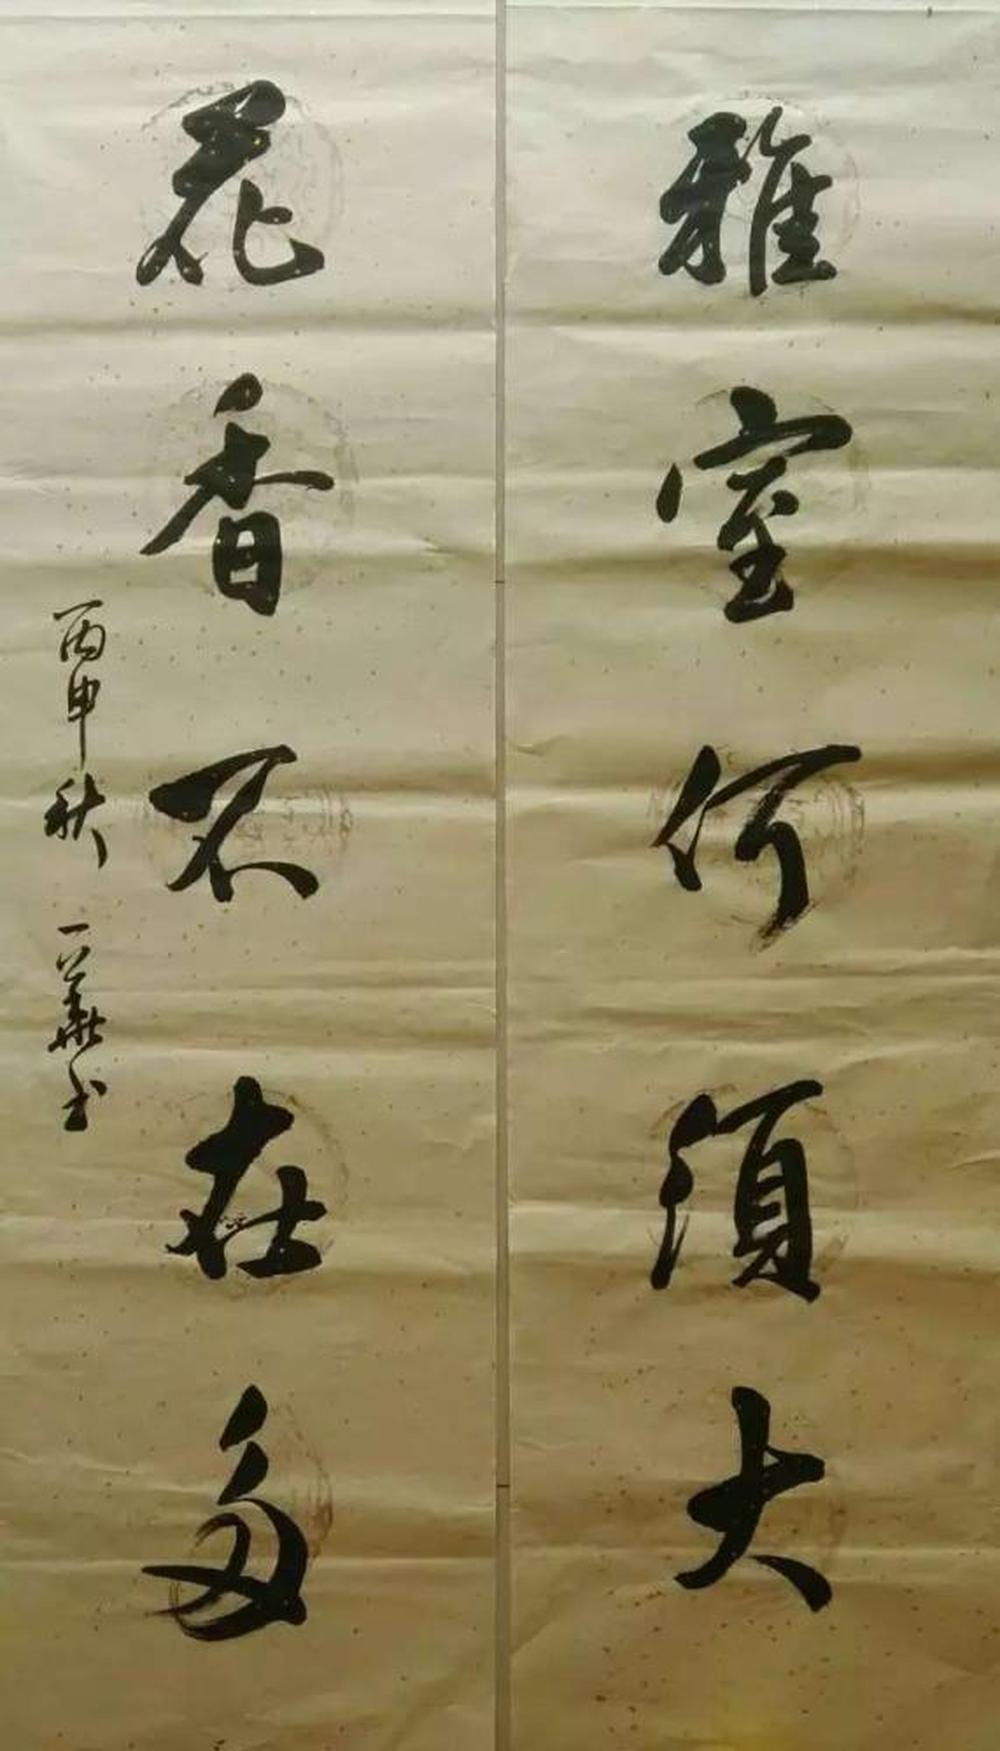 雅室何須大
花香不在多
丙申秋 一華书